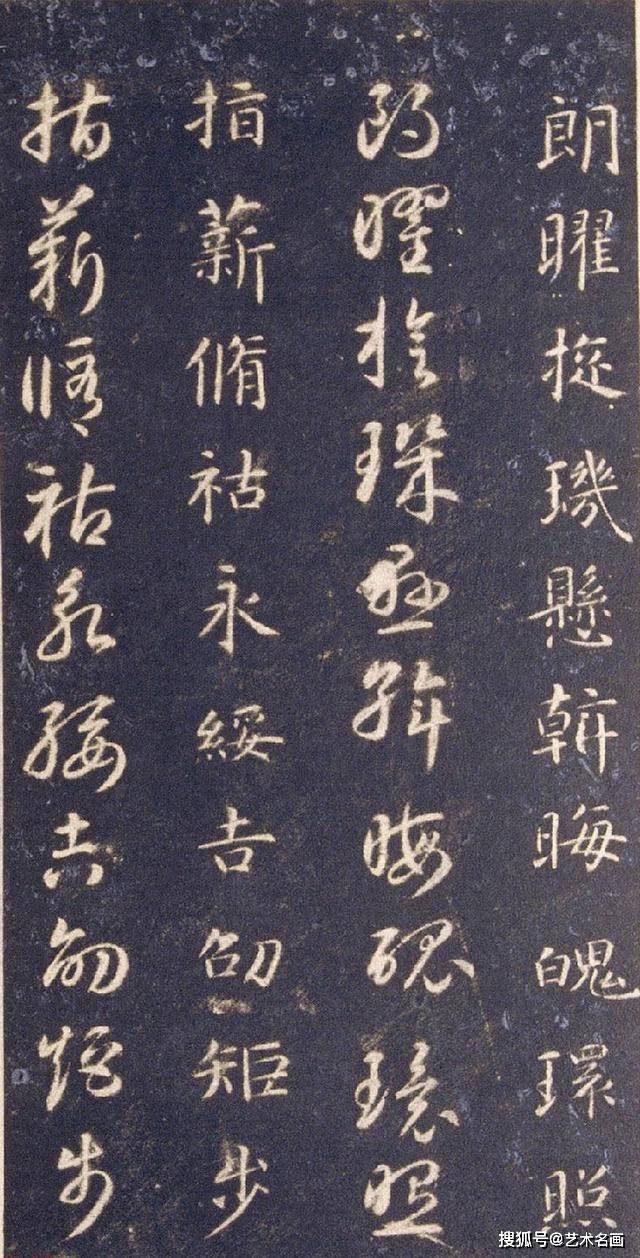 朗曜旋璣懸斡晦魄環照
朗曜旋璣懸斡晦魄環照
指薪脩祜永綏吉劭矩步
指薪脩祜永綏吉劭矩步
搜狐号@艺术名画